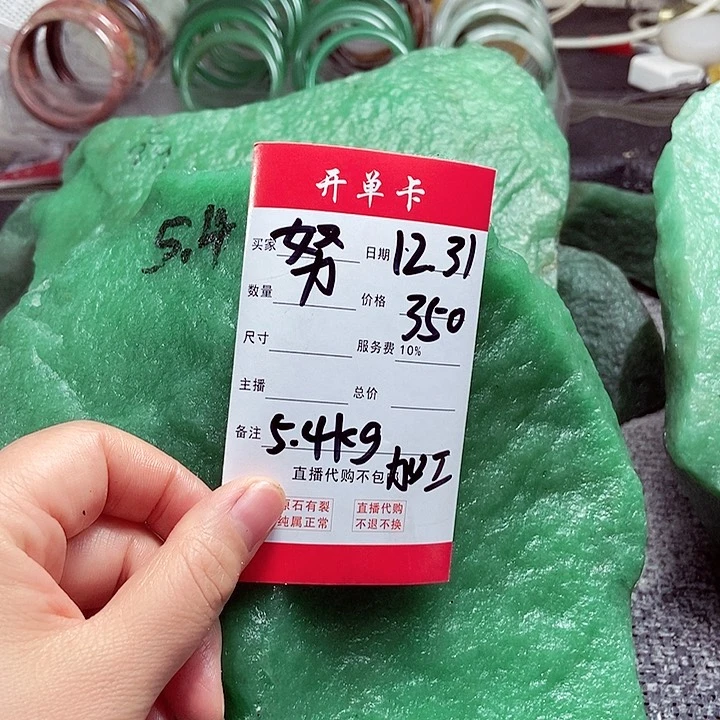 开单卡
5.4
买家 努 日期 12.31
数量 价格 350
尺寸 服务费 10%
主播 总价
备注 5.4kg
直播代购不包 加工
原石有裂 直播代购
纯属正常 不退不换